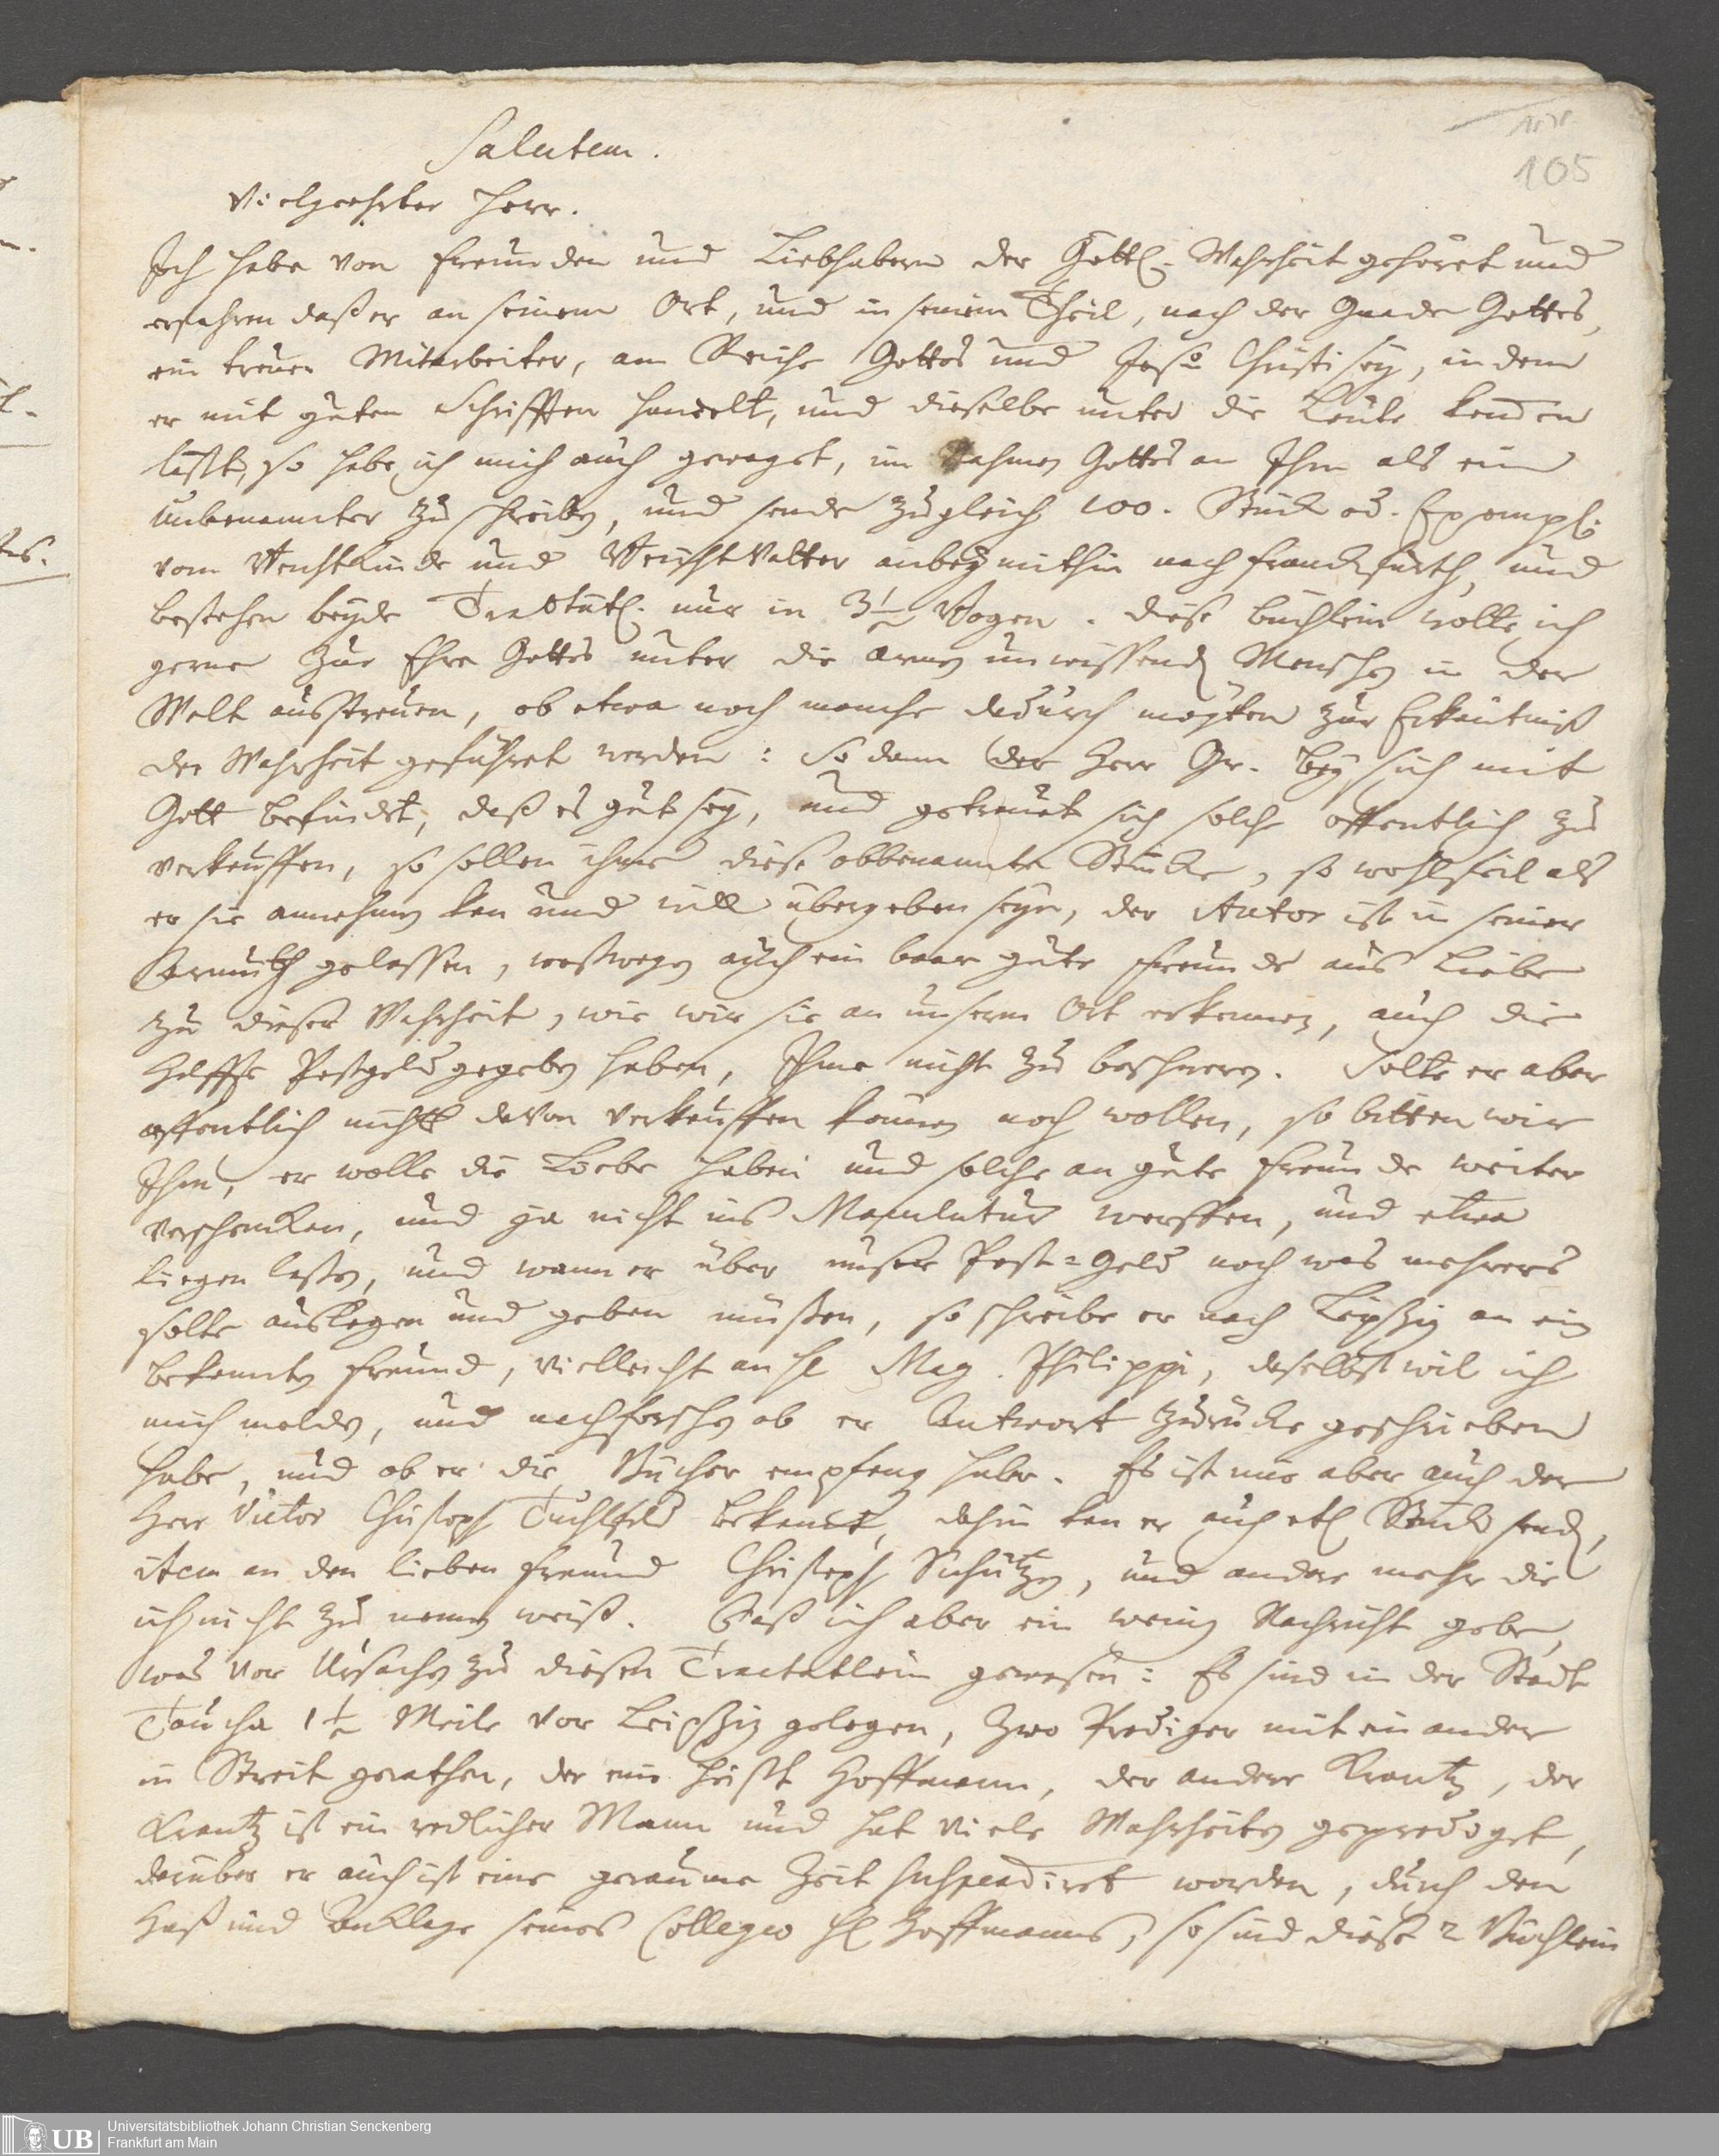 105
Salutem.
Vielgeehrter Herr.
Ich habe von Freunden und Liebhabern der Göttl. Wahrheit gehöret und
erfahren daß er an seinem Ort, und in seinem Theil, nach der Gnade Gottes,
ein treuer Mitarbeiter, am Reiche Gottes und Jesu Christi sey, in dem
er mit guten Schrifften handelt, und dieselbe unter die Leute
läßt, so habe ich mich auch gewaget, im Nahmen Gottes an Ihm als ein
unbenannter zu schreiben, und sende zugleich 100. Stück od. Exempl:
vom und anbey mithin nach Franckfurth, und
bestehen beyde Tractätl. nur in 3½ Bogen. diese büchlein wolte ich
gerne zur Ehre Gottes unter die armen unwissend. Menschen in der
Welt ausstreuen, ob etwa noch manche dadurch möchten zur Erkäntniß
der Wahrheit geführet werden: So dann der Herr Gr. bey sich mit
Gott befindet, daß es gut sey, und getrauet sich solche öffentlich zu
verkauffen, so sollen ihme diese obbenannte Stücke, so wohlfeil als
er sie annehmen kan und will übergeben seyn, der Autor ist in seiner
Armuth gelassen, weßwegen auch ein baar gute Freunde aus Liebe
zu dieser Wahrheit, wie wir sie an unserm Ort erkennen, auch die
Helffte Postgeld gegeben haben, Ihme nicht zu beschweren. Solte er aber
öffentlich nichts davon verkauffen können noch wollen, so bitten wir
Ihm, er wolle die Liebe haben und solche an gute Freunde weiter
verschencken, und ja nicht ins Maculatur werffen, und etwa
liegen lassen, und wann er über unser Post-Geld noch was mehrers
solte auslegen und geben müssen, so schreibe er nach Leipzig an ein
bekannten Freund, vielleicht an H. Mag. Philippi, daselbst wil ich
mich melden, und nachforschen ob er Antwort zurücke geschrieben
habe, und ob er die Bücher empfangen habe. Es ist mir aber auch der
Herr Victor Christoph Tuchtfeld bekannt, dahin kan er auch etl. Stück send.,
item an den lieben Freund Christoph Schützen, und andere mehr die
ich nicht zu nennen weiß. Daß ich aber ein wenig Nachricht gebe,
was vor Ursachen zu diesen Tractatlein gewesen: Es sind in der Stadt
Taucha 1½ Meile vor Leipzig gelegen, zwo Prediger mit einander
in Streit gerathen, der eine heißt Hoffmann, der andere Krantz, der
Krantz ist ein redlicher Mann und hat viele Wahrheiten geprediget,
darüber er auch ist eine geraume Zeit suspendiret worden, durch den
Haß und Anklage seines Collegen H. Hoffmanns, so sind diese 2 Büchlein
UB
Universitätsbibliothek Johann Christian Senckenberg
Frankfurt am Main